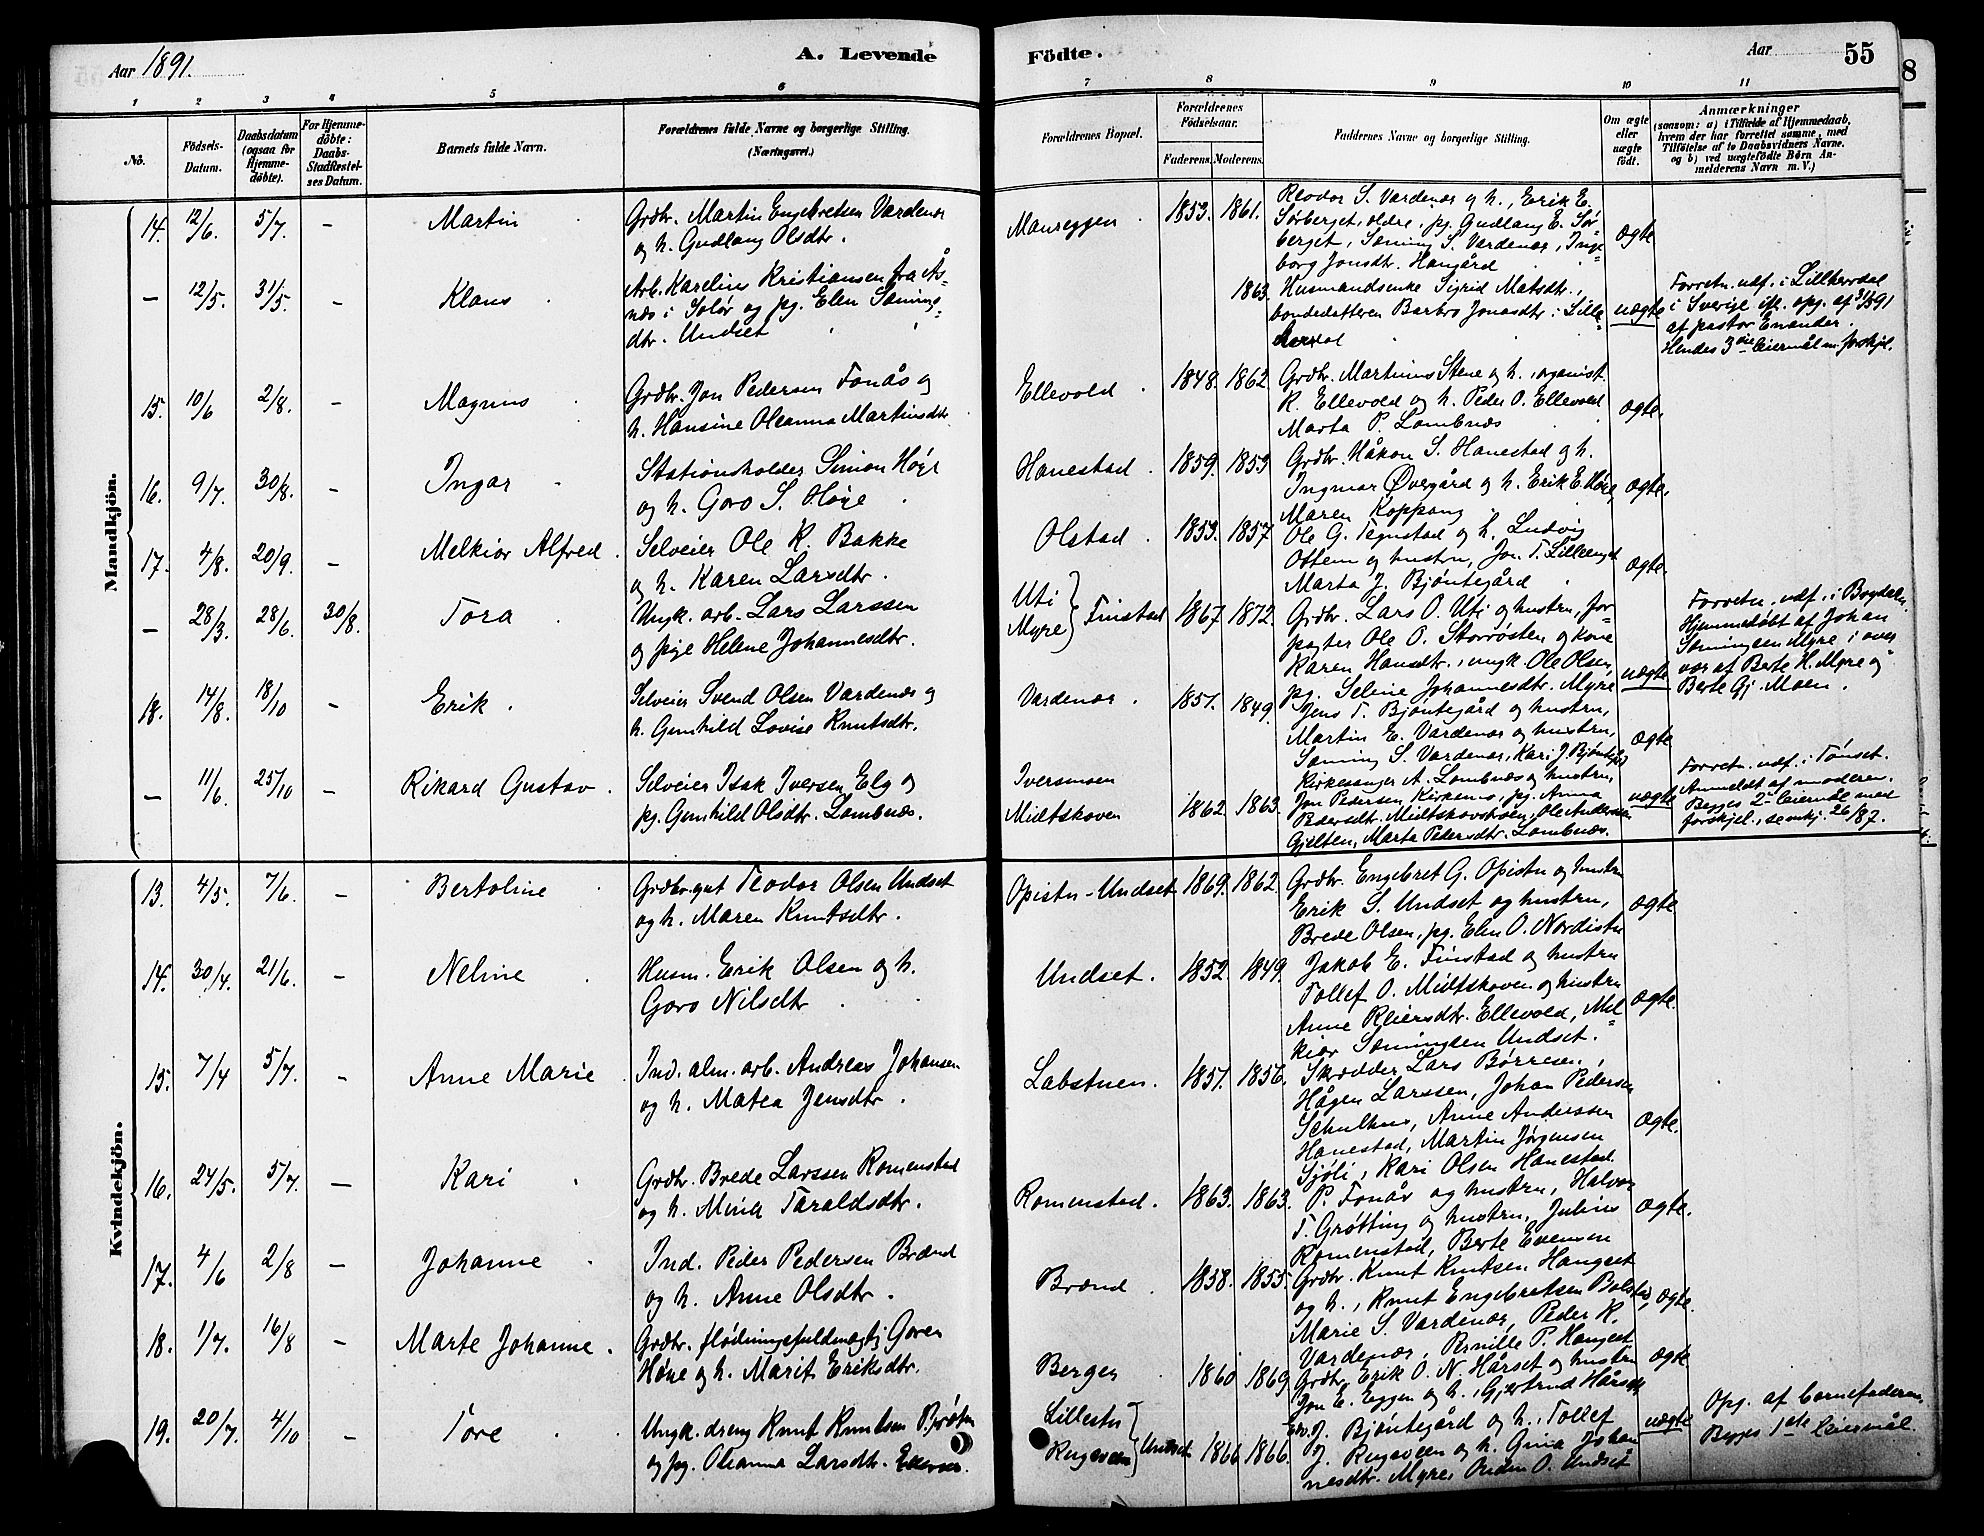 Aar 1891. A. Levende
Födte. Aar 55
8
1 2 3 4 5 6 7 8 9 10 11
No.
Födsels-
Datum.
Daabsdatum
(ogsaa for
Hjemme-
döbte).
For Hjemme-
döbte:
Daabs-
Stadfæstel-
ses Datum.
Barnets fulde Navn.
Forældrenes fulde Navne og borgerlige Stilling.
(Næringsvei.)
Forældrenes Bopæl.
Forældrenes
Födselsaar.
Faderens. Moderens.
Faddernes Navne og borgerlige Stilling.
Om ægte
eller
uægte
födt.
Anmærkninger
(saasom: a) i Tilfælde af Hjemmedaab,
hvem der har forrettet samme, med
Tilföielse af to Daabsvidners Navne.
og b) ved uægtefödte Börn An-
melderens Navn m. V.)
Mandkjön.
14. 12/6. 5/7. - Martin
Grdbr. Martin Engebretsen Vardenær
og h. Gudlaug Olsdtr.
Maureggen 1853. 1861.
S. Vardenær og h., Erik E.
Sørberget, eldre, pg. Gudlaug E. Sør-
berget, Sæming S. Vardenær, Inge-
borg Jonsdtr. Hangård
ægte
- 12/5. 31/5. - Klaus
Arb. Karelius Kristiansen fra Ås-
næs i Solør og pg. Elen Sæmings-
dtr. Undset
1863.
Husmandsenke Sigrid Matsdtr.,
bondedatteren Barbro Jonasdtr. i Lille-
herdal
uægte
Forretn. udf. i Lillherdal
i Sverige ifl. opg. af 31/5 91
af pastor Enander.
Hendes 3die leiermål m. forskjel.
15. 10/6 2/8. - Magnus
Grdbr. Jon Pedersen Fonås og
h. Hansine Oleanna Martinsdtr
Ellevold 1848. 1862
Grdbr. Martinus Stene og h., organist
K. Ellevold og h. Peder O. Ellevold
Marta P. Lombnæs
ægte.
16. 9/7. 30/8. - Ingar
Stationsholder Simon Høye
og h. Goro S. Høye
Hanestad 1859. 1853
Grdbr. Håkon S. Hanestad og h.
Ingmar Øvergård og h. Erik E. Høye,
Maren Koppang
ægte.
17. 4/8. 20/9. - Melkior Alfred.
Selveier Ole K. Bakke
og h. Karen Larsdtr.
Olstad 1853. 1857
Ole G. Tegnstad og h. Ludvig
Ottem og hustru, Jon T. Lilleenget
Marta J. Bjøntegård
ægte.
- 28/3. 28/6. 30/8. Tora
Ungk. arb. Lars Larssen
og pige Helene Johannesdtr.
Uti
Myre } Finstad 1867 1872
Grdbr. Lars O. Uti og hustru, for-
pagter Ole O. Storrøsten og kone
Karen Hansdtr., ungk. Ole Olsen,
pg. Seline Johannesdtr. Myre
uægte
Forretn. udf. i Brydalen.
Hjemmedøbt af Johan
Sæmingsen Myre i over-
vær af Berte H. Myre og
Berte Gj. Moen.
18. 14/8. 18/10 - Erik.
Selveier Svend Olsen Vardenær og
h. Gunhild Lovise Knutsdtr.
Vardenær. 1851. 1849.
Jens T. Bjøntegård og hustru,
Martin E. Vardenær og hustru,
Sæming S. Vardenær, Kari J. Bjøntegd
ægte
- 11/6. 25/10 - Rikard Gustav.
Selveier Isak Iversen Elg og
pg. Gunhild Olsdtr. Lombnæs.
Iversmoen
Midtskoven 1862. 1863.
Kirkesanger A. Lombnæs og hustru,
Jon Pedersen Kirkemo, pg. Anna
Pedersdtr. Midtskovstuen, Ole Andersen
Gjelten, Marta Pedersdtr. Lombnæs.
uægte
Forretn. udf. i Tønset.
Anmeldt af moderen.
Begges 2. leiermål med
forskjel., 26/87.
Kvindekjön.
13. 4/5. 7/6. - Bertoline
Grdbr.gut Teodor Olsen Undset
og h. Maren Knutsdtr.
Opistu-Undset 1869. 1862.
Grdbr. Engebret G. Opistu og hustru
Erik S. Undset og hustru,
Brede Olsen, pg. Elen O. Nordistu
ægte
14. 30/4. 21/6. - Neline
Husm. Erik Olsen og h.
Goro Nilsdtr
Undset. 1852. 1849.
Jakob E. Finstad og hustru
Tollef O. Midtskoven og hustru
Anne Reiersdtr. Ellevold, Mel-
kior Sæmingsen Undset.
ægte.
15. 7/4 5/7. - Anne Marie
Ind. alm. arb. Andreas Johansen
og h. Matea Jensdtr.
Labstuen. 1857. 1856.
Skrædder Lars Børresen,
Hågen Larssen, Johan Pedersen
Schulhus, Anne Anderssen
Hanestad, Martin Jørgensen
Sjøli, Kari Olsen Hanestad.
ægte.
16. 24/5. 5/7. - Kari
Grdbr. Brede Larssen Romenstad
og h. Mina Taraldsdtr.
Romenstad. 1863. 1863.
P. Fonås og hustru, Halvor
T. Grøtting og hustru, Julius
Romenstad, Berte Evensen
ægte.
17. 4/6 2/8 - Johanne
Ind. Peder Pedersen Brænd
og h. Anne Olsdtr.
Brænd 1838. 1855.
Grdbr. Knut Knutsen Hangset
og h., Knut Engebretsen Bolstad,
Marie S. Vardenær, Peder K.
Vardenær, Pernille P. Hangset
ægte.
18. 1/7. 16/8 - Marte Johanne.
Grdbr. flødningsfuldmægtig Goren
Høye og h. Marit Eriksdtr.
Berger 1860 1869
Grdbr. Erik O. N. Hårset og hustru
Jon E. Eggen og h., Gjertrud Hårset
ægte
19. 20/7. 4/10 - Tore
Ungk. dreng Knut Knutsen Bjøntu
og pg. Oleanna Larsdtr.
Lillestu
Rugsveen } Undset 1866 1866.
J. Bjøntegård og h., Tollef
J. Rugsveen og h. Gina Johan-
nesdtr. Myre, Peder O. Undset
uægte
Opg. af barnefaderen.
Begges 1ste leiermål.